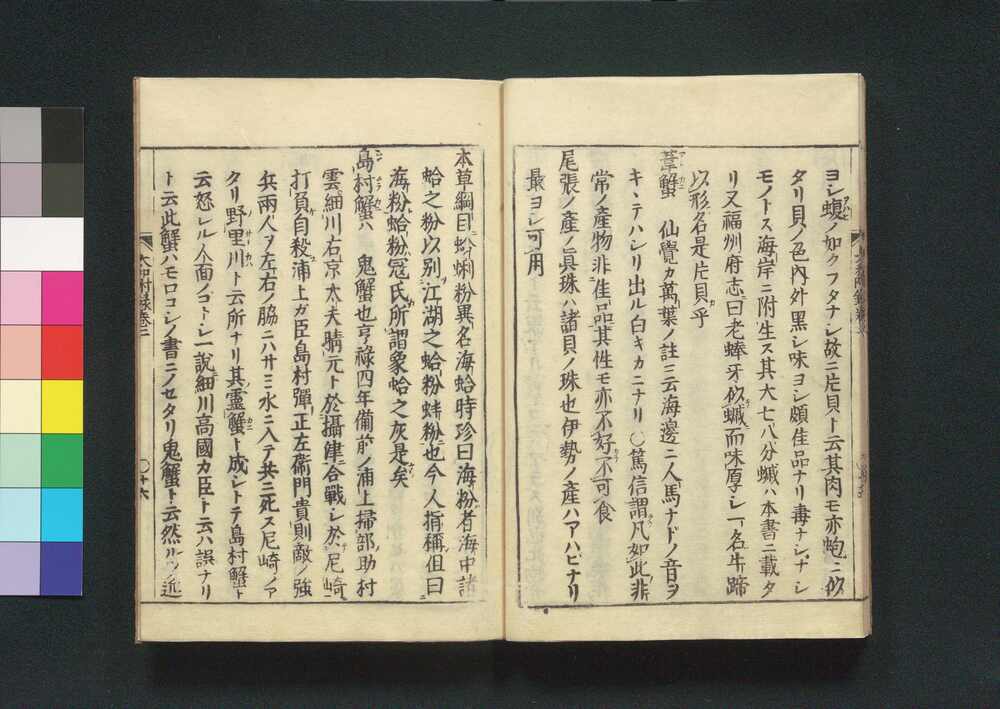 ヨシ蝮ノ如クフタナシ故ニ片貝ト云其肉モ亦鮑ニ似
タリ貝ノ色內外黒シ味ヨシ頗佳品ナリ毒ナシナシ
モノトス海岸ニ附生ス其大七八分蠘ハ本書ニ載タ
リ又福州府志曰老蜯牙似蠘而味厚シ一名牛蹄
以形名是片貝乎
葦蟹 仙覺カ萬葉ノ註ニ云海邊ニ人馬ナドノ音ヲ
キヽテハシリ出ル白キカニナリ〇篤信謂凡如此非
常ノ產物非佳品其性モ亦不好不可食
尾張ノ產ノ眞珠ハ諸貝ノ珠也伊勢ノ產ハアハビナリ
最ヨシ可用
本草綱目蛤蜊粉異名海蛤時珍曰海粉者海中諸
蛤之粉以別江湖之蛤粉蚌粉也今人指稱但曰
海粉蛤粉冦氏所謂衆蛤之灰是矣
島村蟹ハ 鬼蟹也亨祿四年備前ノ浦上掃部助村
雲細川右京太夫晴元ト於攝律合戰シ於尼崎
打負自殺浦上ガ臣島村彈正左衞門貴則敵ノ強
兵兩人ヲ左右ノ脇ニハサミ水ニ入テ共ニ死ス尼崎ノア
タリ野里川ト云所ナリ其靈蟹ト成シトテ島村蟹ト
云怒レル人面ノゴトシ一說細川高國カ臣ト云ハ誤ナリ
ト云此蟹ハモロコシノ書ニノセタリ鬼蟹ト云然ルヲ近
大和本草附錄卷二
〇十六